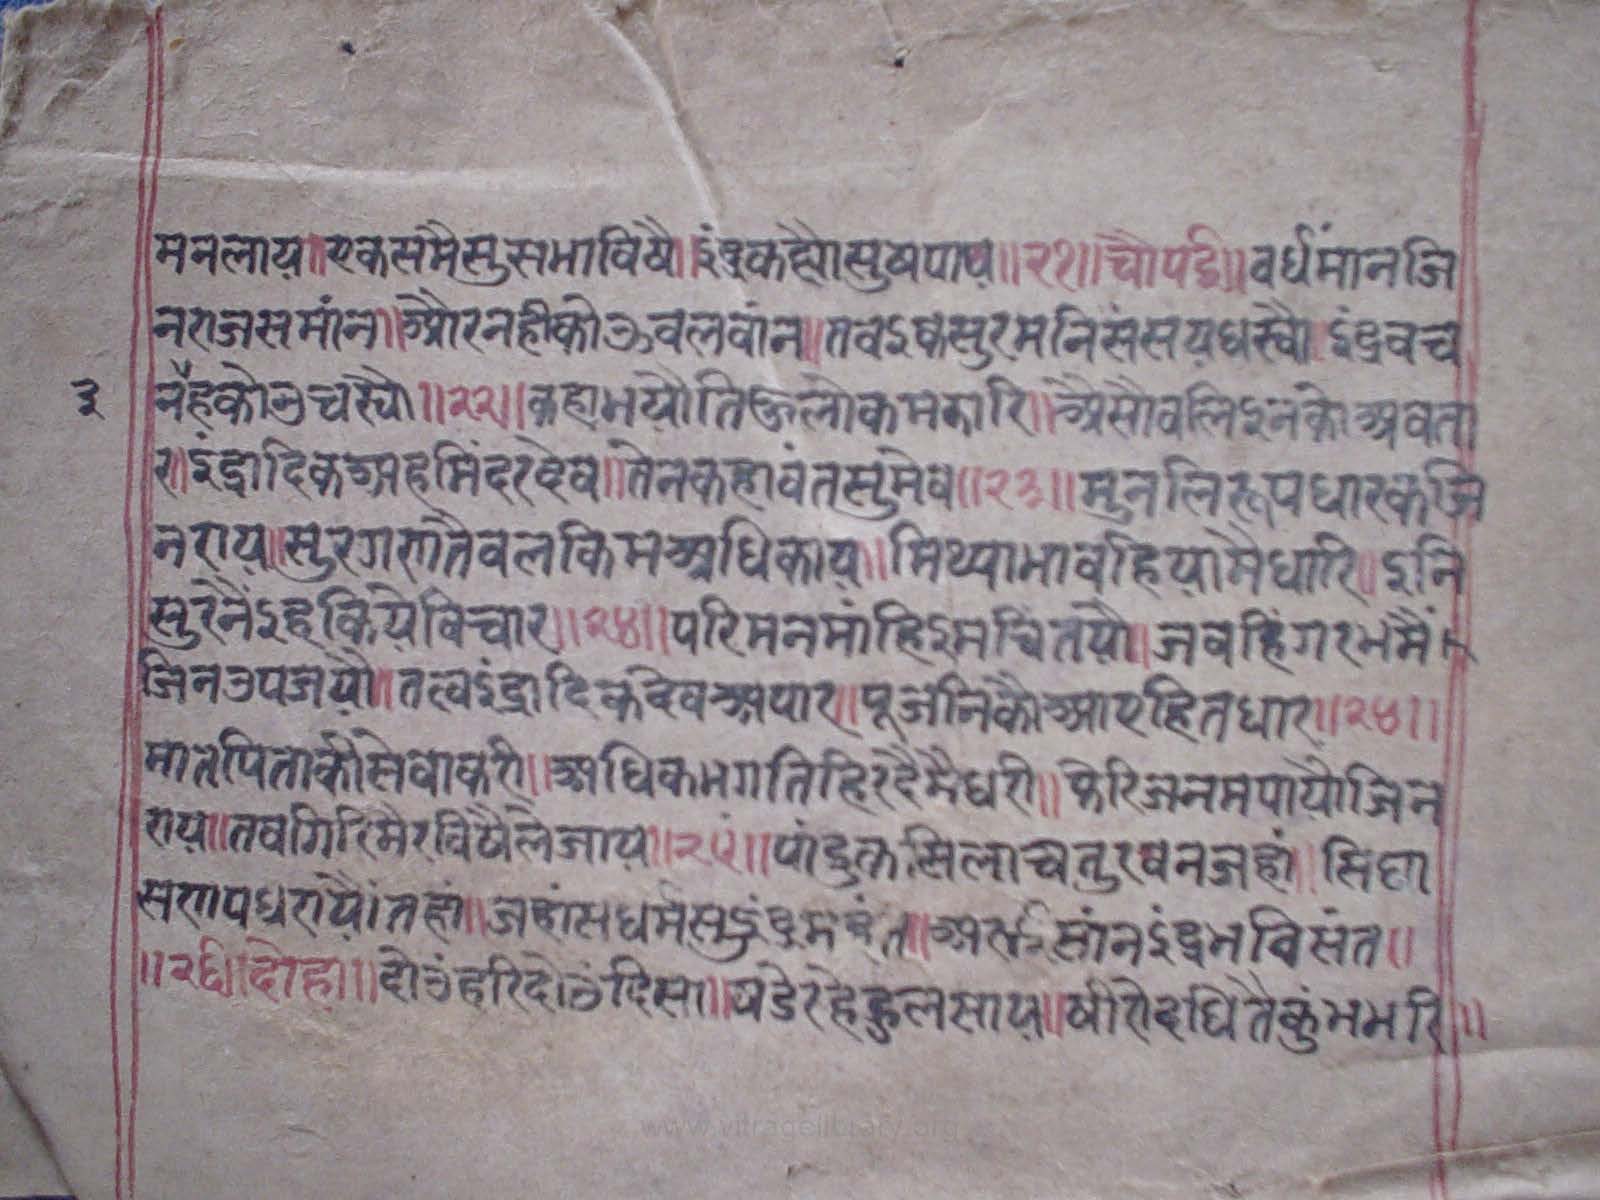 मनलाय॥एकसमैसुसभाविषै॥इंद्रकह्यौसुषपाय॥२१॥चौपई॥वर्धमांनजि
नराजसमांन॥औरनहीकोऊवलवांन॥तवइकसुरमनिसंसयधस्यौ॥इंद्रवच
३
नैहकोउचस्यौ॥२२॥कहाभयौतिऊलोकमकारि॥अैसौवलिइनकोअवता
र॥इंद्रादिकअहमिंदरदेव॥तेनकहावंतसुमेव॥२३॥मुनलिरूपधारकजि
नराय॥सुरगणतैवलकिमअधिकाय॥मिथ्याभावहियामैधारि॥इनि
सुरनैंइहकियेविचार॥२४॥परिमनमांहिइमचिंतयौ॥जवहिंगरभमैं
जिनउपजयौ॥तत्वइंद्रादिकदेवअपार॥पूजनिकौआएहितधार॥२४॥
मातपिताकीसेवाकरी॥अधिकभगतिहिरदैमैधरी॥फेरिजनमपायौजिन
राय॥तवगिरिमेरविषैलैजाय॥२५॥पांडुकसिलाचतुरवनजहां॥सिंघा
सणपधरायौंतहां॥जहांसधर्मसुइंद्रमहंत॥अरुईसांनइंद्रभविसंत॥
॥२६॥दोहा॥दोउंहरिदोउंदिसा॥षडेरहेहुलसाय॥षीरोदधितैकुंभभरि॥
www.vitragelibrary.org